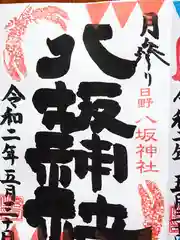 月参り
日野
八坂神社
八坂神社
令和二年五月二
令和二年五